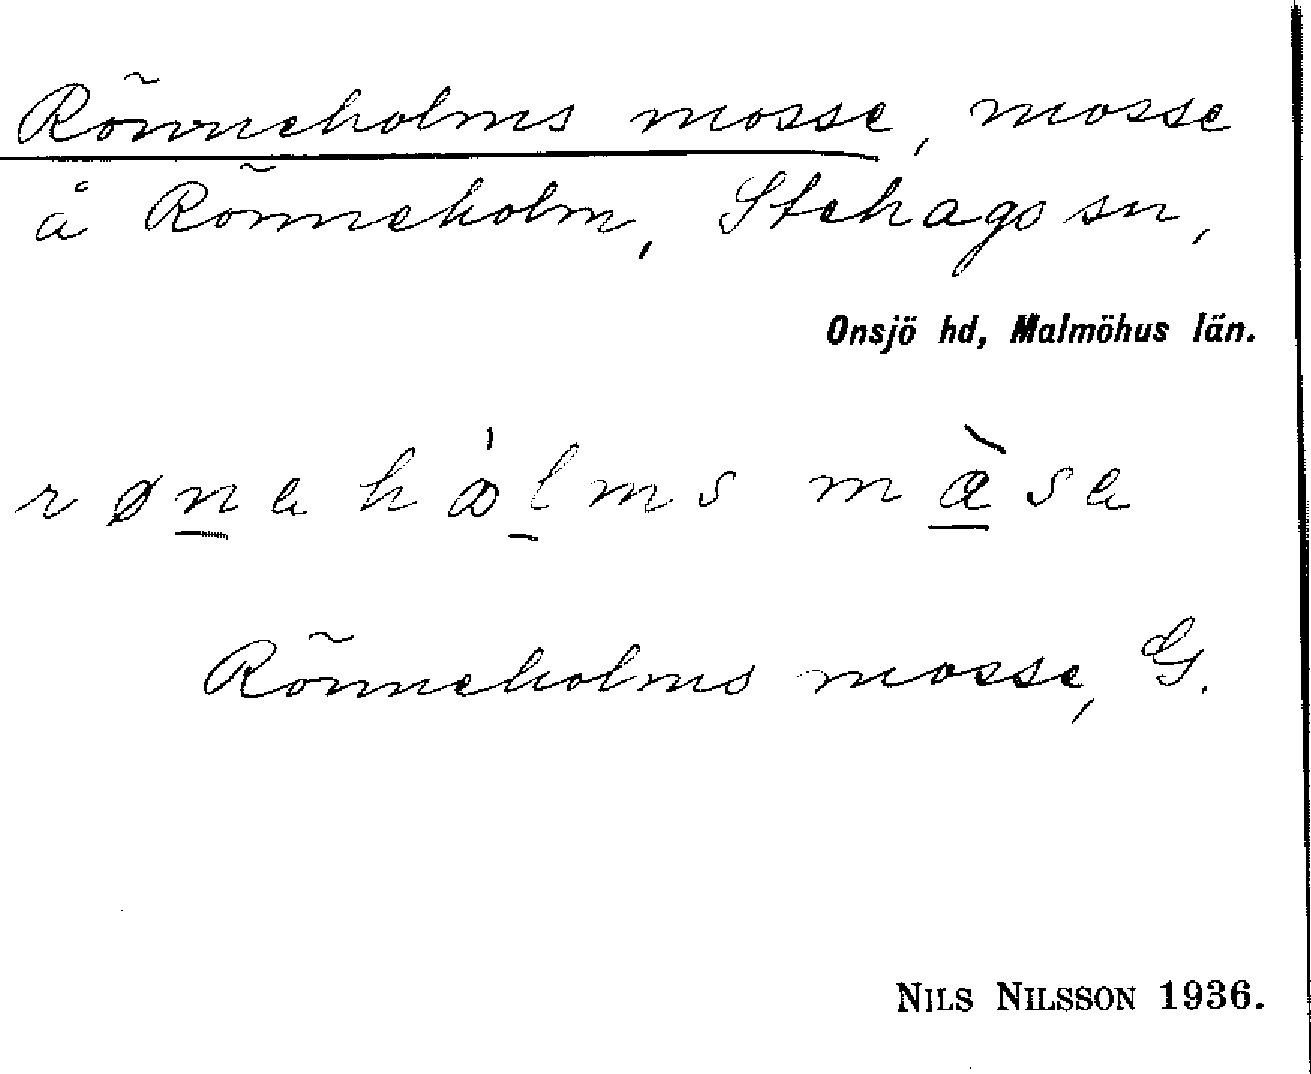 Rönneholms mosse, mosse
å Rönneholm, Stehags sn,
Onsjö hd, Malmöhus län.
Rönneholms mosse, G.
NILS NILSSON 1936.